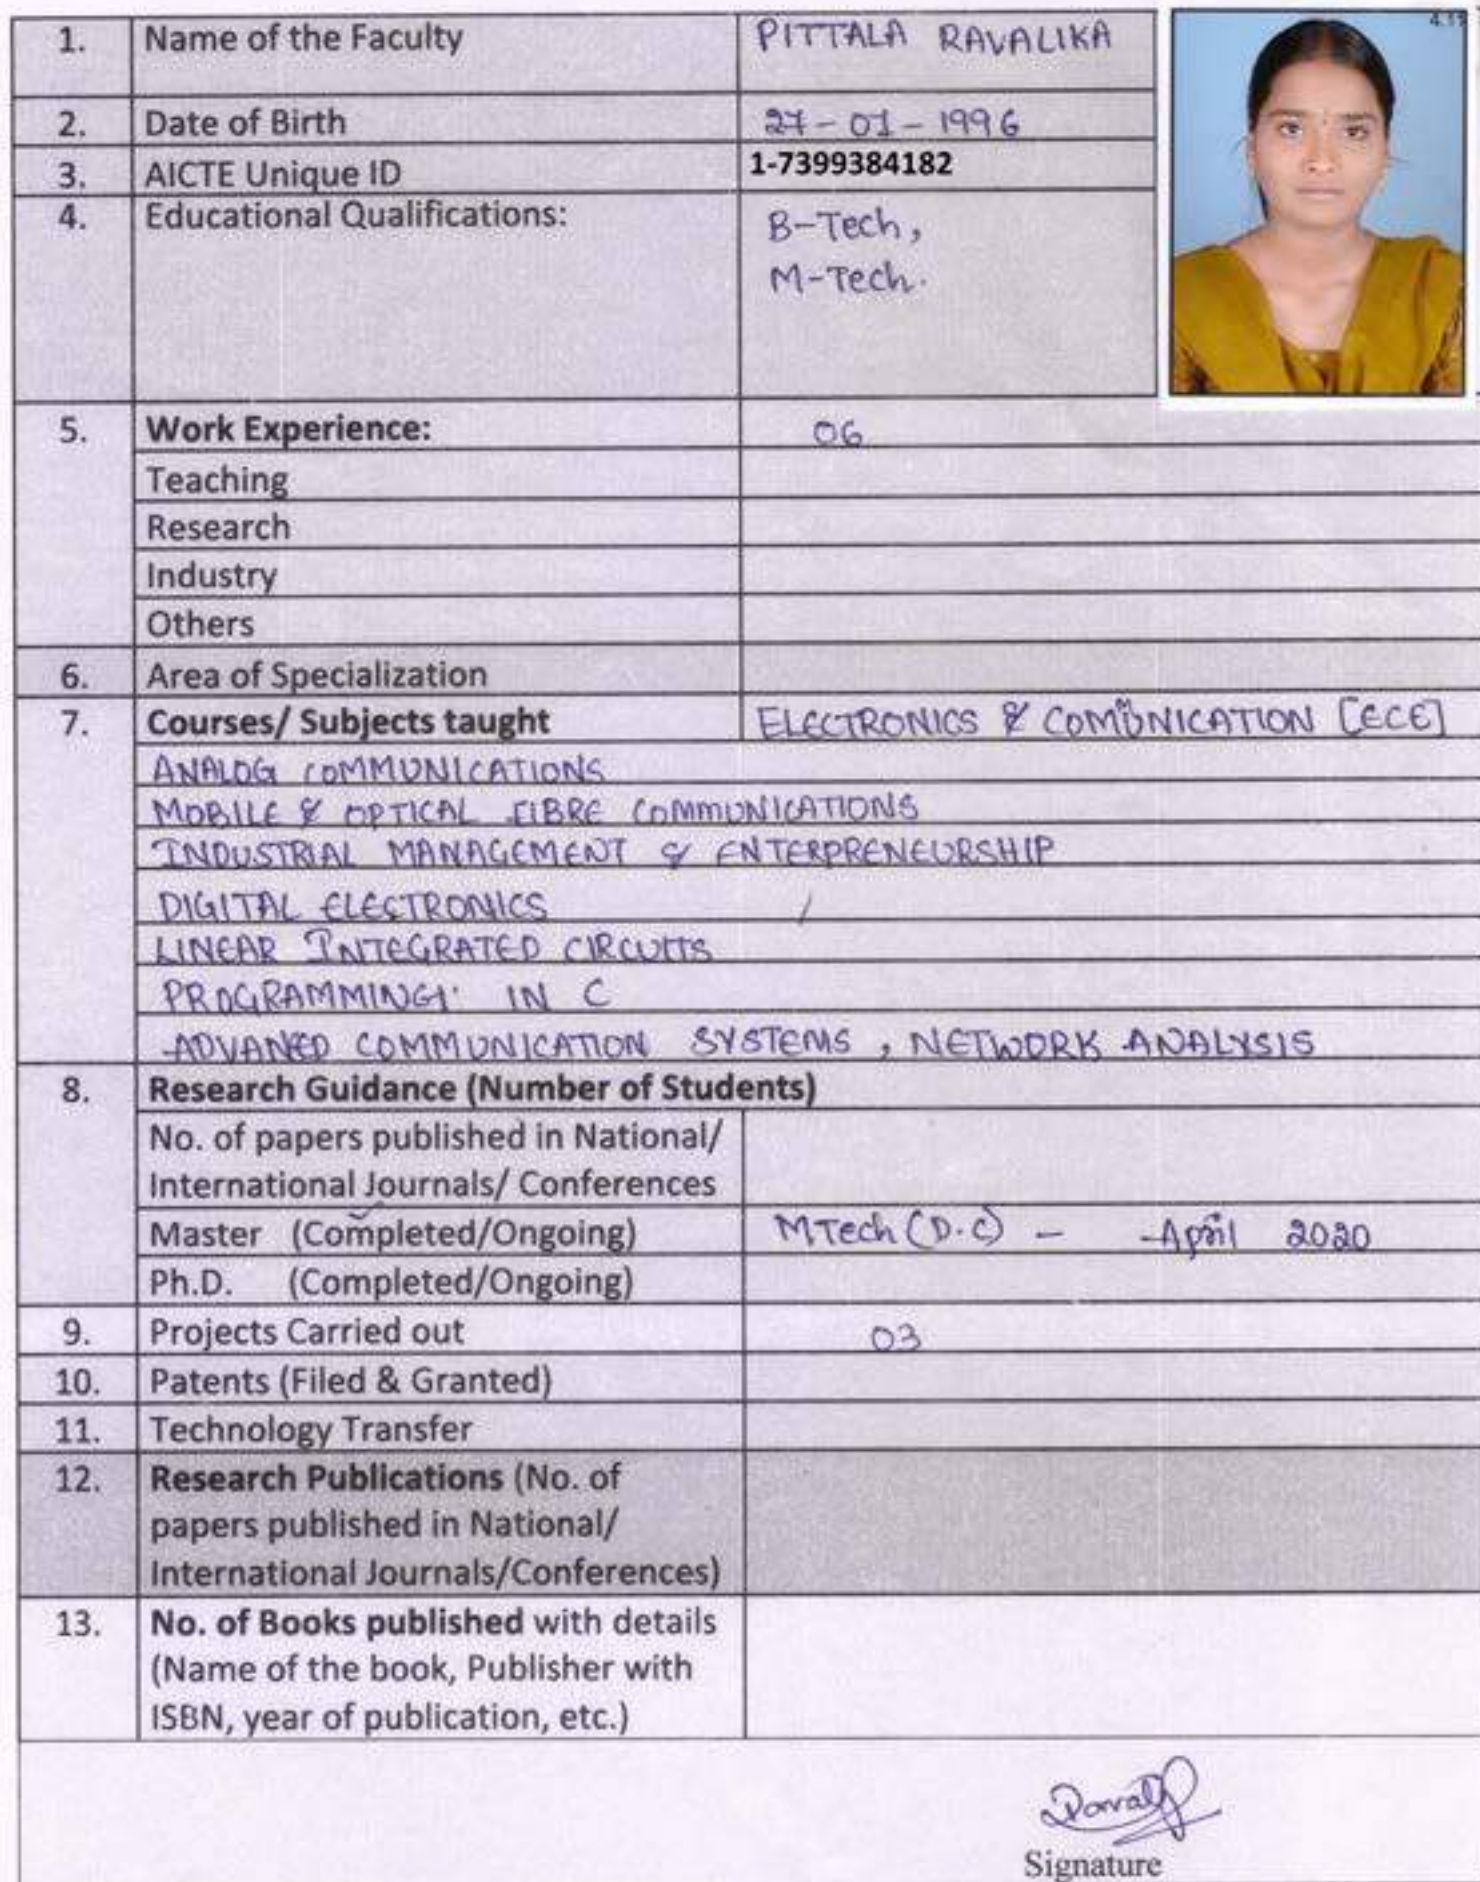 1. Name of the Faculty PITTALA RAVALIKA
4.11
2. Date of Birth 27-01-1996
3. AICTE Unique ID 1-7399384182
4. Educational Qualifications: B-Tech,
M-Tech.
5. Work Experience: 06
Teaching
Research
Industry
Others
6. Area of Specialization
7. Courses/ Subjects taught ELECTRONICS & COMUNICATION [ECE]
ANALOG COMMUNICATIONS
MOBILE & OPTICAL FIBRE COMMUNICATIONS
INDUSTRIAL MANAGEMENT & ENTERPRENEURSHIP
DIGITAL ELECTRONICS
LINEAR INTEGRATED CIRCUITS
PROGRAMMING IN C
ADVANED COMMUNICATION SYSTEMS, NETWORK ANALYSIS
8. Research Guidance (Number of Students)
No. of papers published in National/
International Journals/ Conferences
Master (Completed/Ongoing) MTech (D.C) - April 2020
Ph.D. (Completed/Ongoing)
9. Projects Carried out 03
10. Patents (Filed & Granted)
11. Technology Transfer
12. Research Publications (No. of
papers published in National/
International Journals/Conferences)
13. No. of Books published with details
(Name of the book, Publisher with
ISBN, year of publication, etc.)
Signature